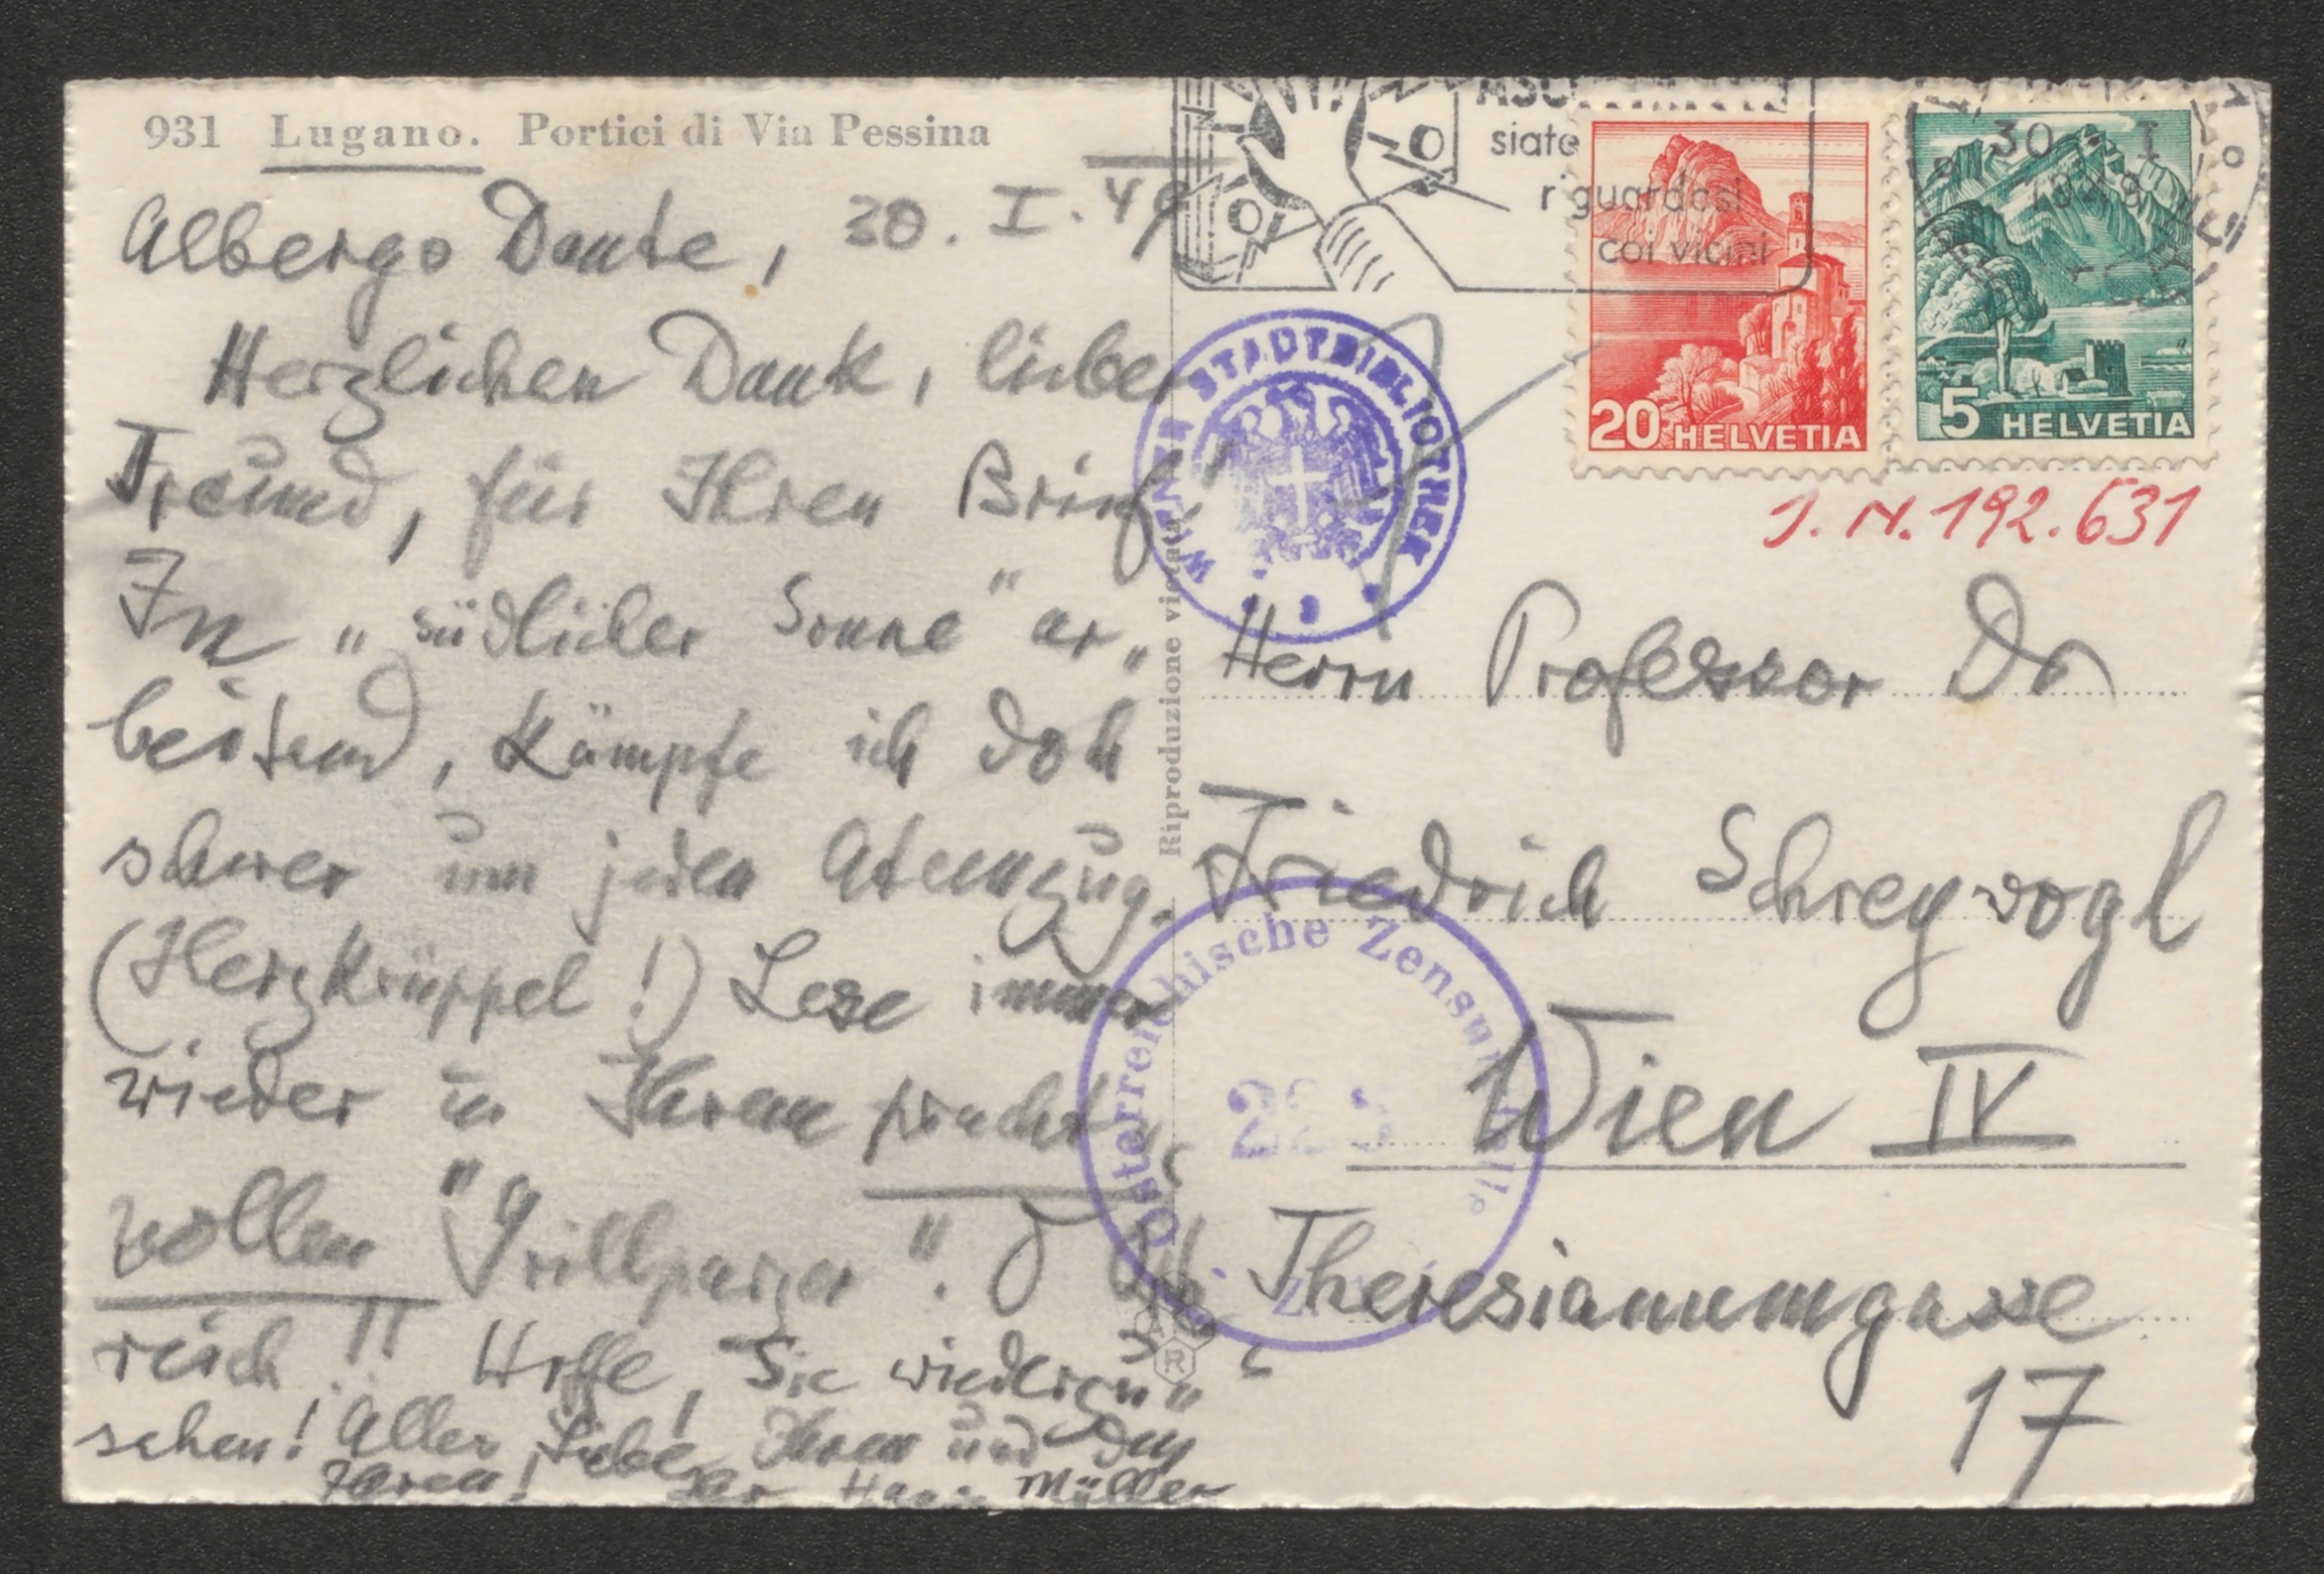 931 Lugano. Portici di Via Pessina
Albergo Dante, 30. I. 49
Herzlichen Dank, lieber
Freund, für Ihren Brief!
In "südlicher Sonne" ar„
beitend, kämpfe ich doch
schwer um jeden Atemzug.
(Herzkrüppel!) Lese immer
wieder in Ihrem pracht„
vollen "Grillparzer".
reich!! Hoffe, Sie wiederzu„
sehen! Alles Liebe Ihnen und den
Ihren! Ihr Hans Müller
Riproduzione vietata
siate
riguardosi
coi vicini
30. I
20 HELVETIA
5 HELVETIA
WIENER STADTBIBLIOTHEK
J. N. 192.631
Herrn Professor Dr
Friedrich Schreyvogl
Wien IV
Theresianumgasse
17
Österreichische Zensurstelle
R